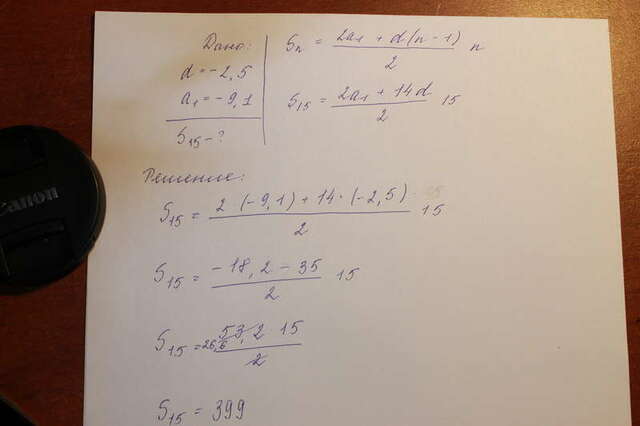 Дано:
d = -2,5
a₁ = -9,1
S₁₅ - ?
Sₙ = (2a₁ + d(n-1))/2 n
S₁₅ = (2a₁ + 14d)/2 15
Решение:
S₁₅ = (2 (-9,1) + 14 · (-2,5))/2 15
S₁₅ = (-18,2 - 35)/2 15
S₁₅ = 26,6 (53,2 15)/2
S₁₅ = 399
Canon